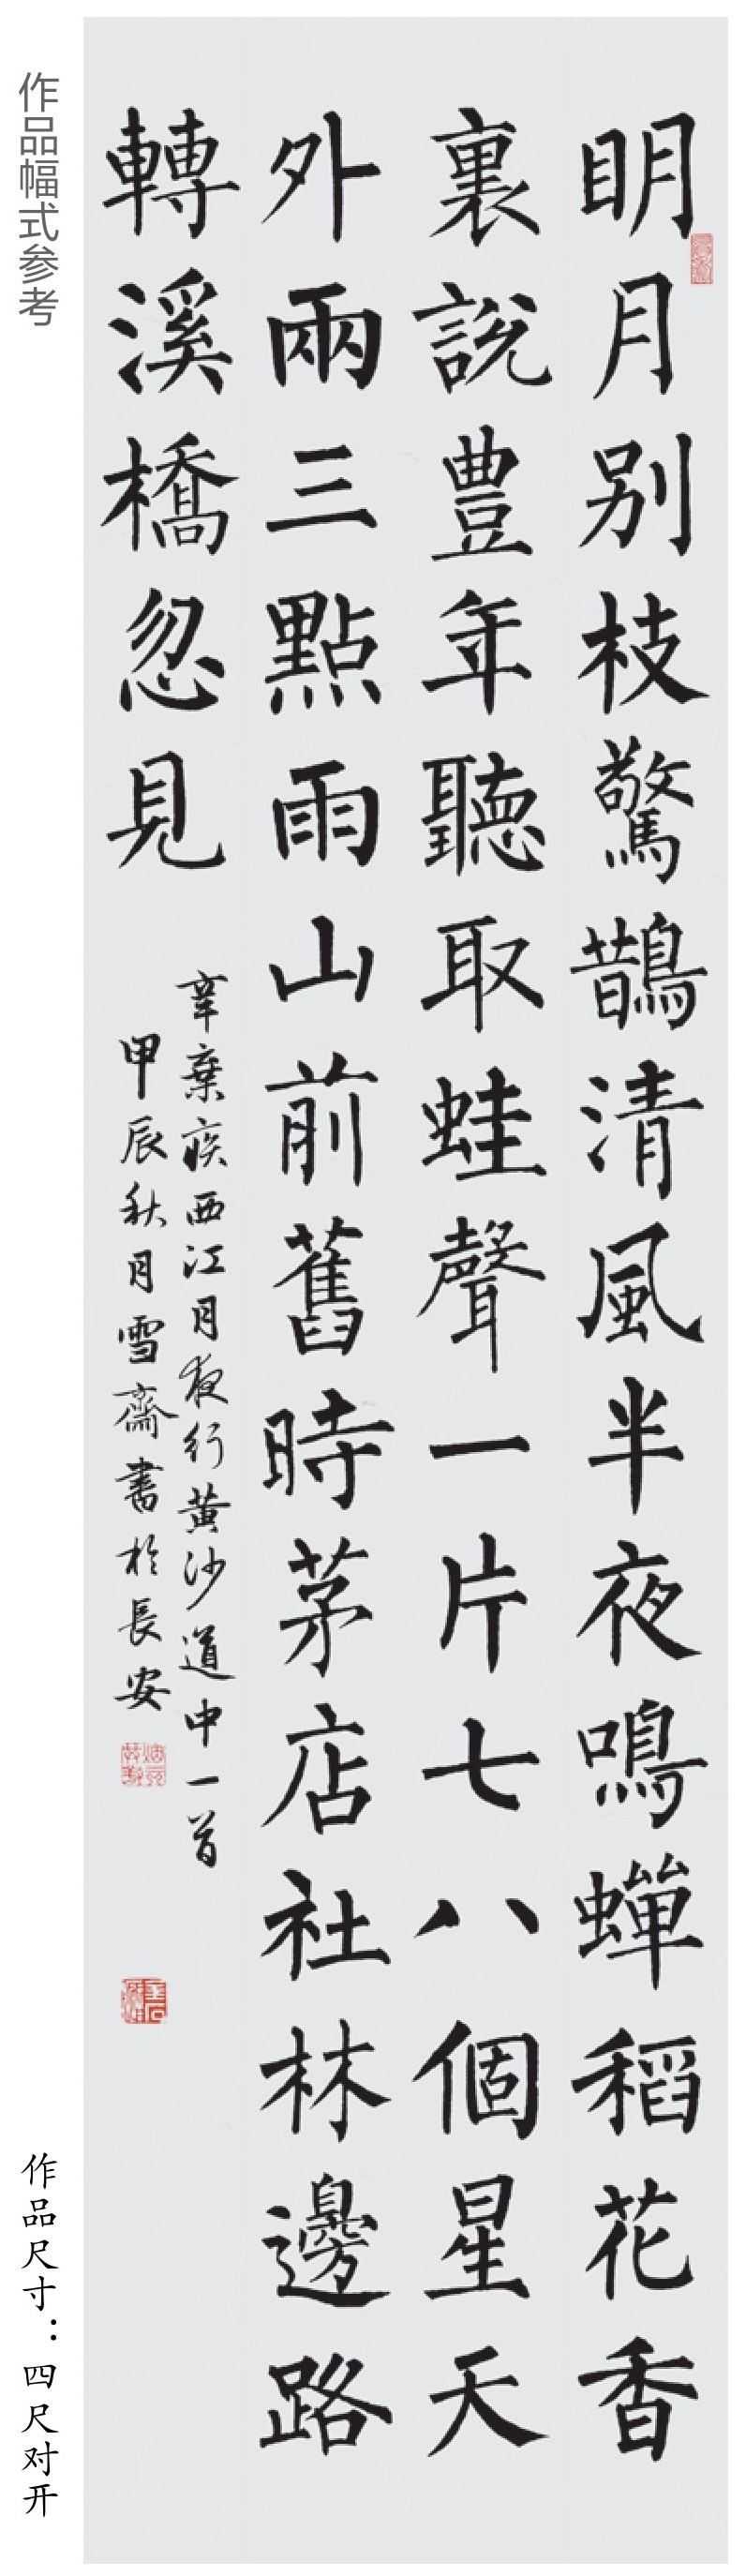 作品幅式参考
明月别枝驚鵲清風半夜鳴蟬稻花香
裏說豊年聽取蛙聲一片七八個星天
外兩三點雨山前舊時茅店社林邊路
轉溪橋忽見
辛棄疾西江月夜行黄沙道中一首
甲辰秋月雪齋書於長安
作品尺寸：四尺对开